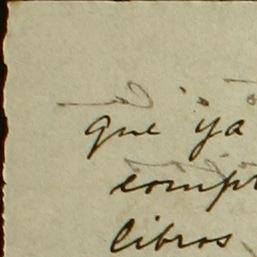 que ya
compr
libros